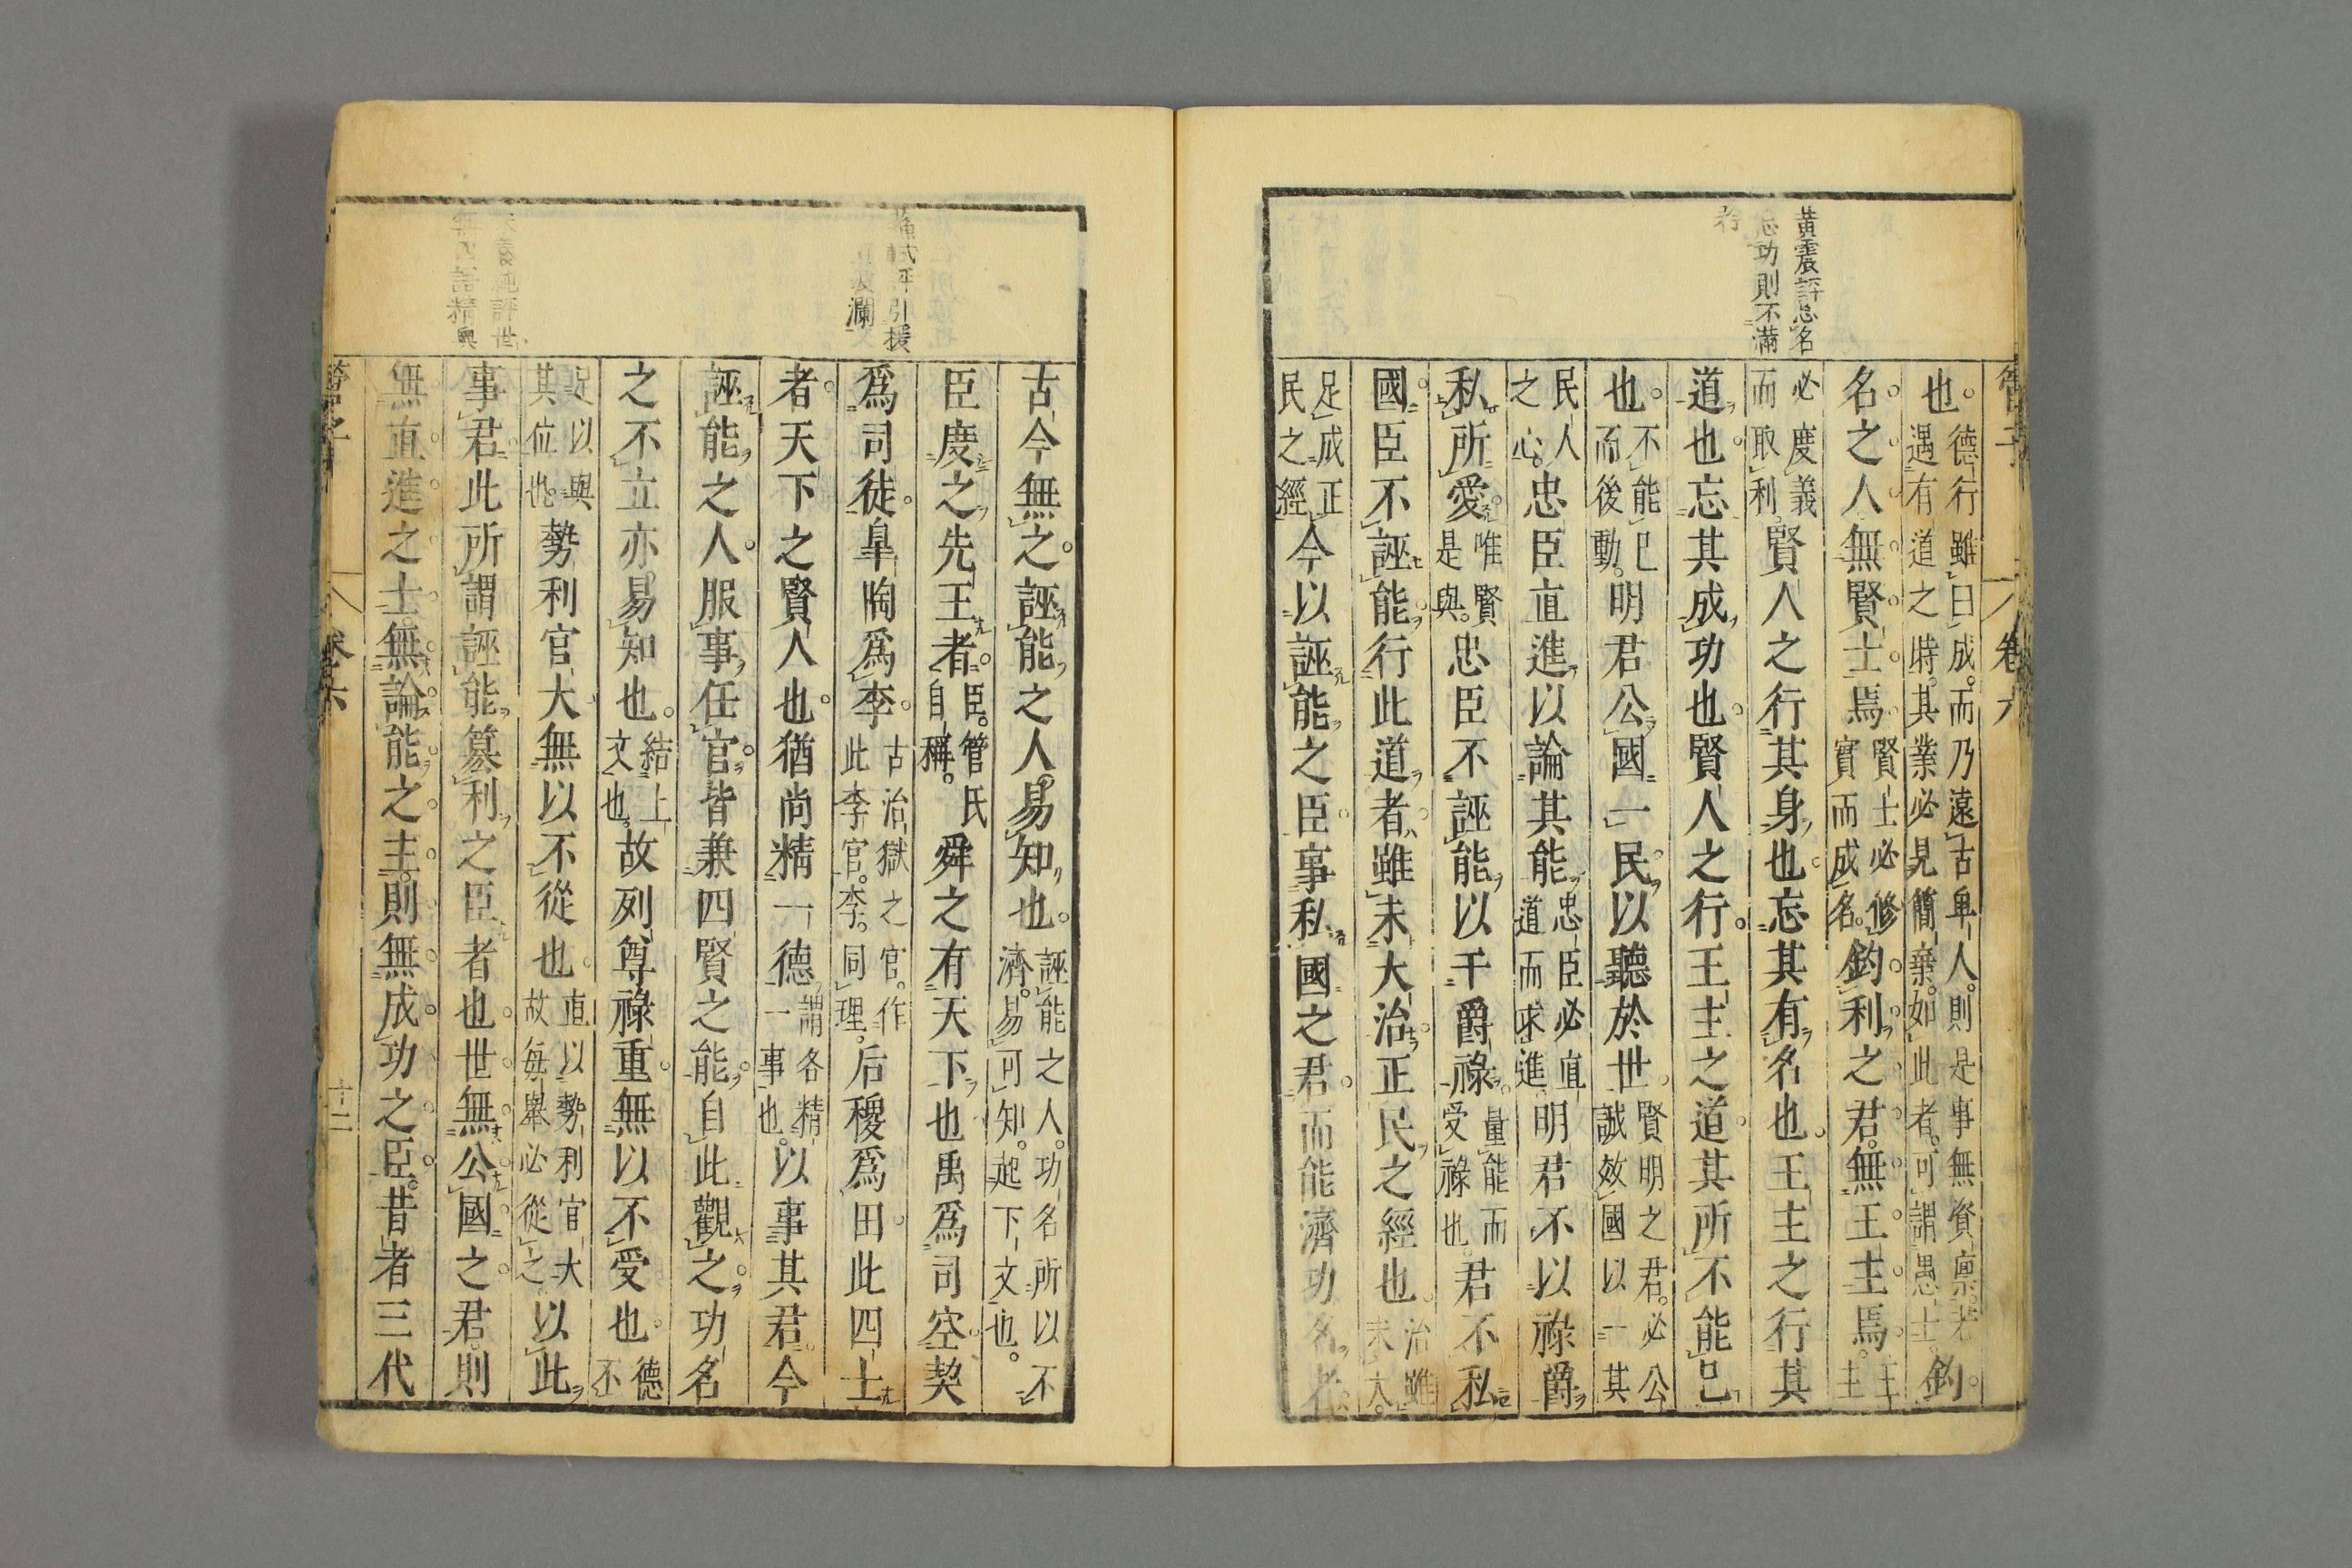 管子
卷六
黄震評忘名
忘功則不滿
也德行雖曰成而乃遠古卑人則是事無資稟若
遇有道之時其業必見簡棄如此者可謂愚士釣
名之人無賢士焉賢士必修實而成名釣利之君無王主焉王主
必度義而取利賢人之行其身也忘其有名也王主之行其
道也忘其成功也賢人之行王主之道其所不能已
也不能已而後動明君公國一民以聽於世賢明之君必公誠效國以一其
民人之心忠臣直進以論其能忠臣必直道而求進明君不以祿爵
私所愛唯賢是與忠臣不誣能以干爵祿量能而受祿也君不私
國臣不誣能行此道者雖未大治正民之經也治雖未大
足成正民之經今以誣能之臣事私國之君而能濟功名者
蘇軾評引援
波瀾
古今無之誣能之人易知也誣能之人功名所以不濟易可知起下文也
臣度之先王者臣管氏自稱舜之有天下也禹爲司空契
爲司徒臯陶爲李古治獄之官作此李官李同理后稷爲田此四士
者天下之賢人也猶尚精一德謂各精一事也以事其君今
誣能之人服事任官皆兼四賢之能自此觀之功名
之不立亦易知也結上文也故列尊祿重無以不受也德不
足以與其位也勢利官大無以不從也直以勢利官大故每舉必從之以此
事君此所謂誣能篡利之臣者也世無公國之君則
無直進之士無論能之主則無成功之臣昔者三代
評世
無四語精奥
管子
卷六
十二